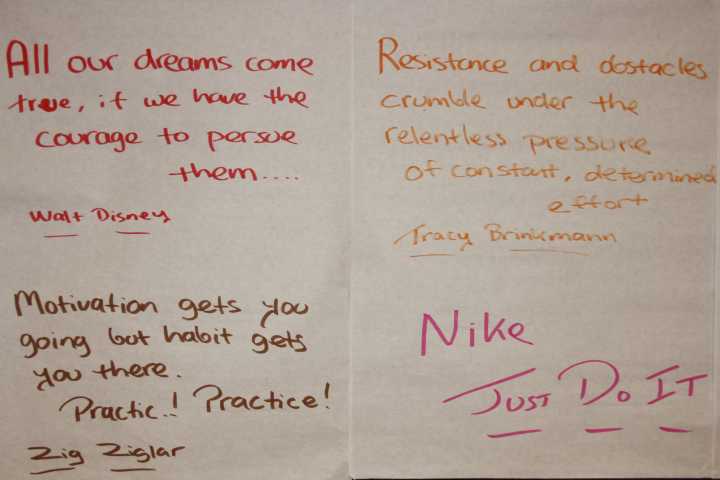 All our dreams come
true, if we have the
courage to persue
them....
Walt Disney
Motivation gets you
going but habit gets
you there.
Practic..! Practice!
Zig Ziglar
Resistance and obstacles
crumble under the
relentless pressure
of constatt, determined
effort
Tracy Brinkmann
Nike
JUST DO IT